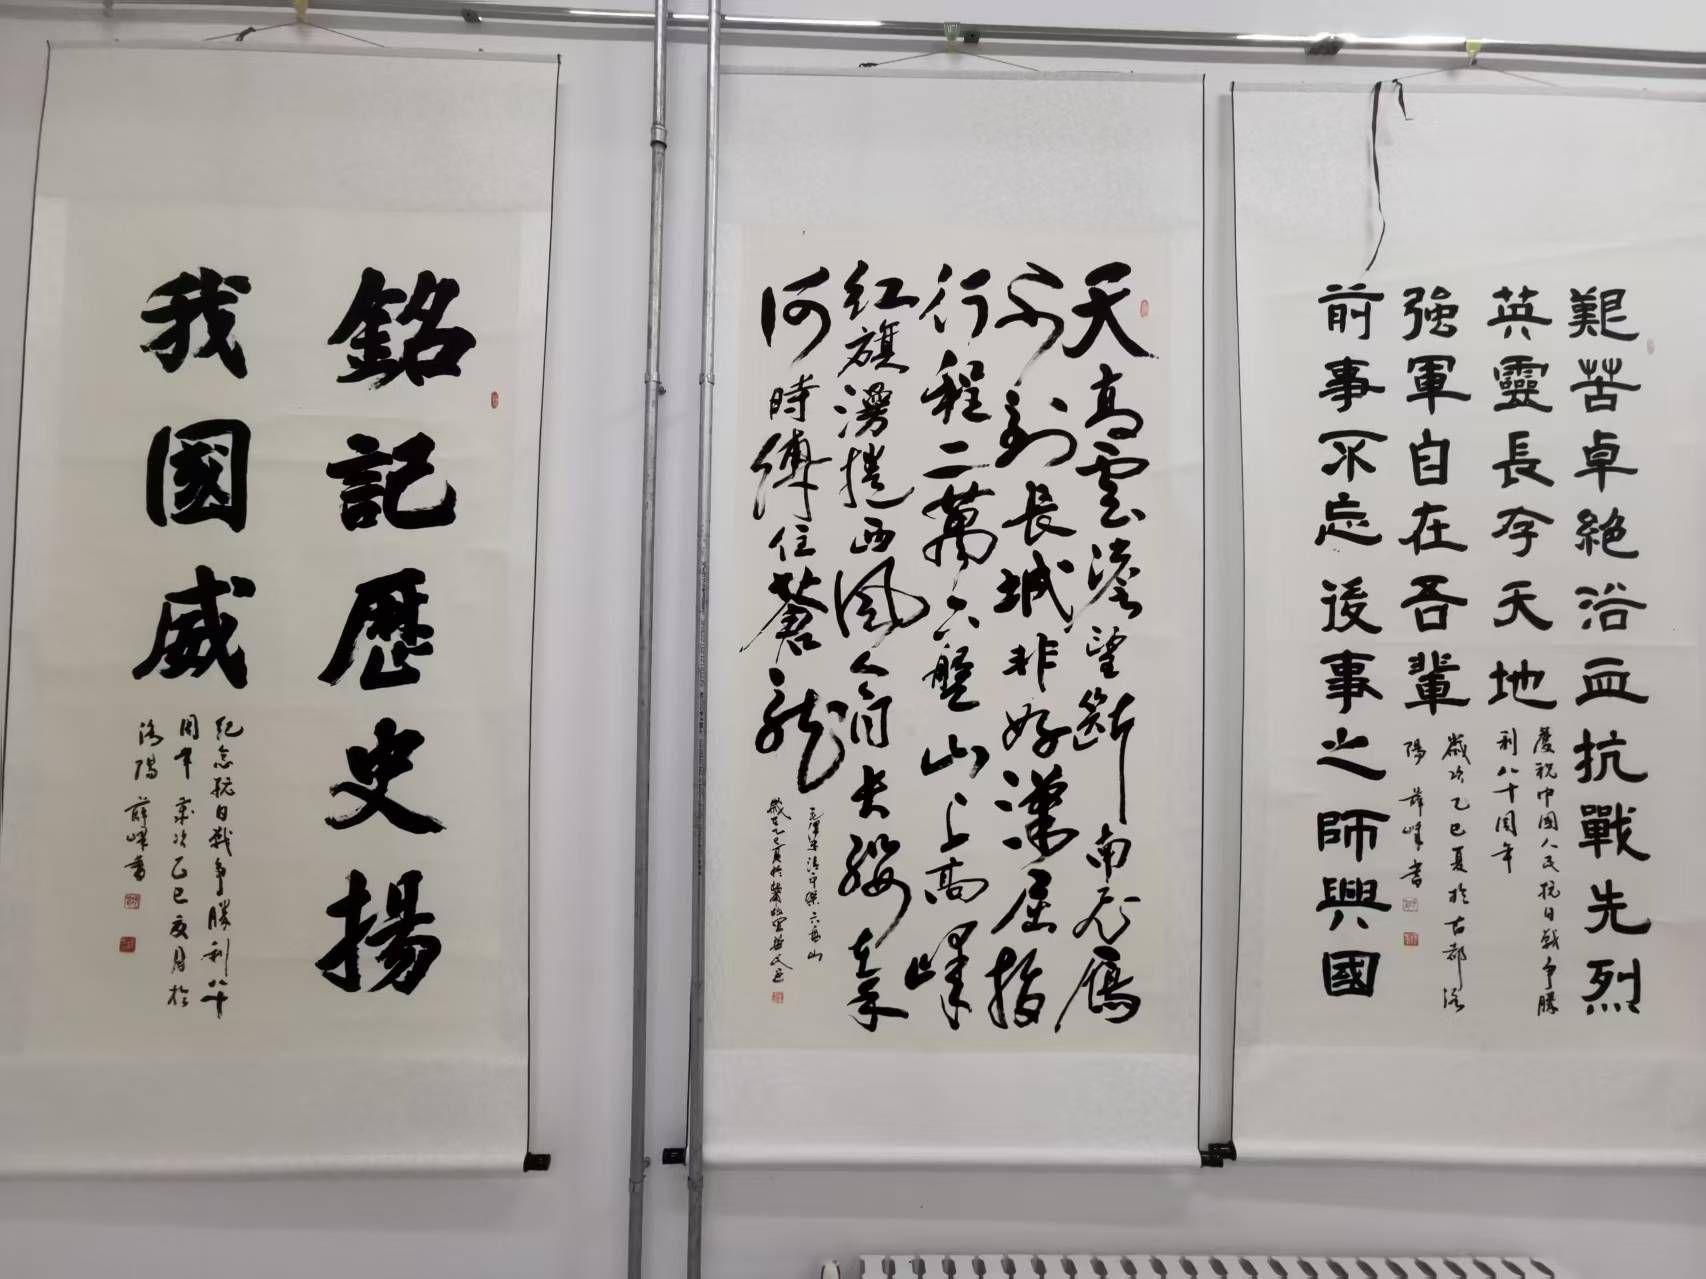 艱苦卓絶浴血抗戰先烈
英靈長存天地
慶祝中國人民抗日戰爭勝
利八十周年
前事不忘後事之師興國
强軍自在吾輩
歲次乙巳夏於古都洛
陽 薛峰書
天高雲澹望斷南飛雁
不到長城非好漢屈指
行程二萬六盤山上高峰
红旗漫捲西风今日長纓在手
何時縛住蒼龍
毛澤東清平樂六盤山
銘記歷史揚
我國威
紀念抗日戰爭勝利八十
周年 歲次乙巳夏月於
洛陽 薛峰書